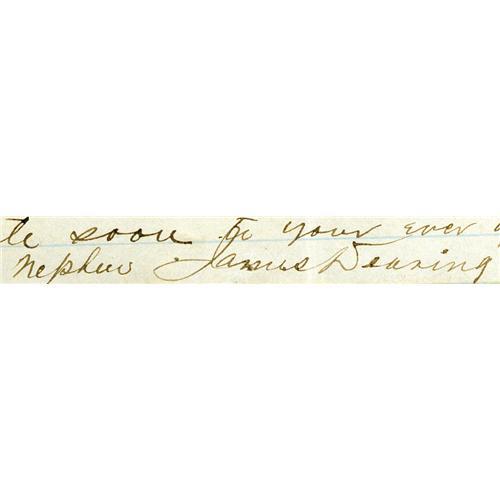 te soon to your ever
Nephew James Dearing